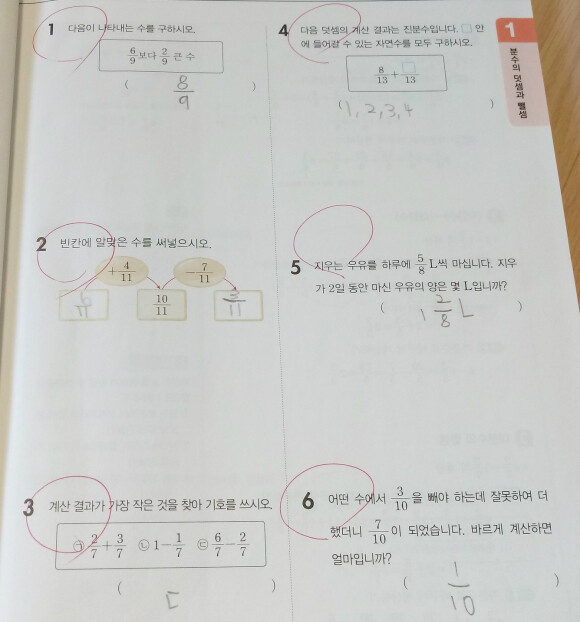 1 다음이 나타내는 수를 구하시오.
6/9 보다 2/9 큰 수
( 8/9 )
2 빈칸에 알맞은 수를 써넣으시오.
+4/11 -7/11
6/11 10/11 3/11
3 계산 결과가 가장 작은 것을 찾아 기호를 쓰시오.
㉠ 2/7+3/7 ㉡ 1-1/7 ㉢ 6/7-2/7
( ㄷ )
4 다음 덧셈의 계산 결과는 진분수입니다. □ 안
에 들어갈 수 있는 자연수를 모두 구하시오.
8/13 + □/13
(1, 2, 3, 4 )
5 지우는 우유를 하루에 5/8 L씩 마십니다. 지우
가 2일 동안 마신 우유의 양은 몇 L입니까?
( 1 2/8 L )
6 어떤 수에서 3/10을 빼야 하는데 잘못하여 더
했더니 7/10이 되었습니다. 바르게 계산하면
얼마입니까?
( 1/10 )
1
분수의 덧셈과 뺄셈